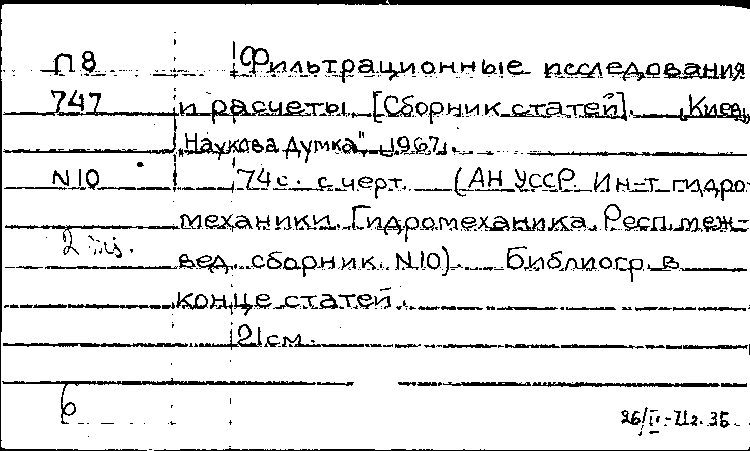 П8 Фильтрационные исследования
747 и расчеты. [Сборник статей]. Киев,
"Наукова думка", 1967.
N10 74с. с черт. (АН УССР. Ин-т гидро-
механики. Гидромеханика. Респ. меж-
2 экз.
вед. сборник. N10). Библиогр. в
конце статей.
21см.
6
26/IV-71г. 35